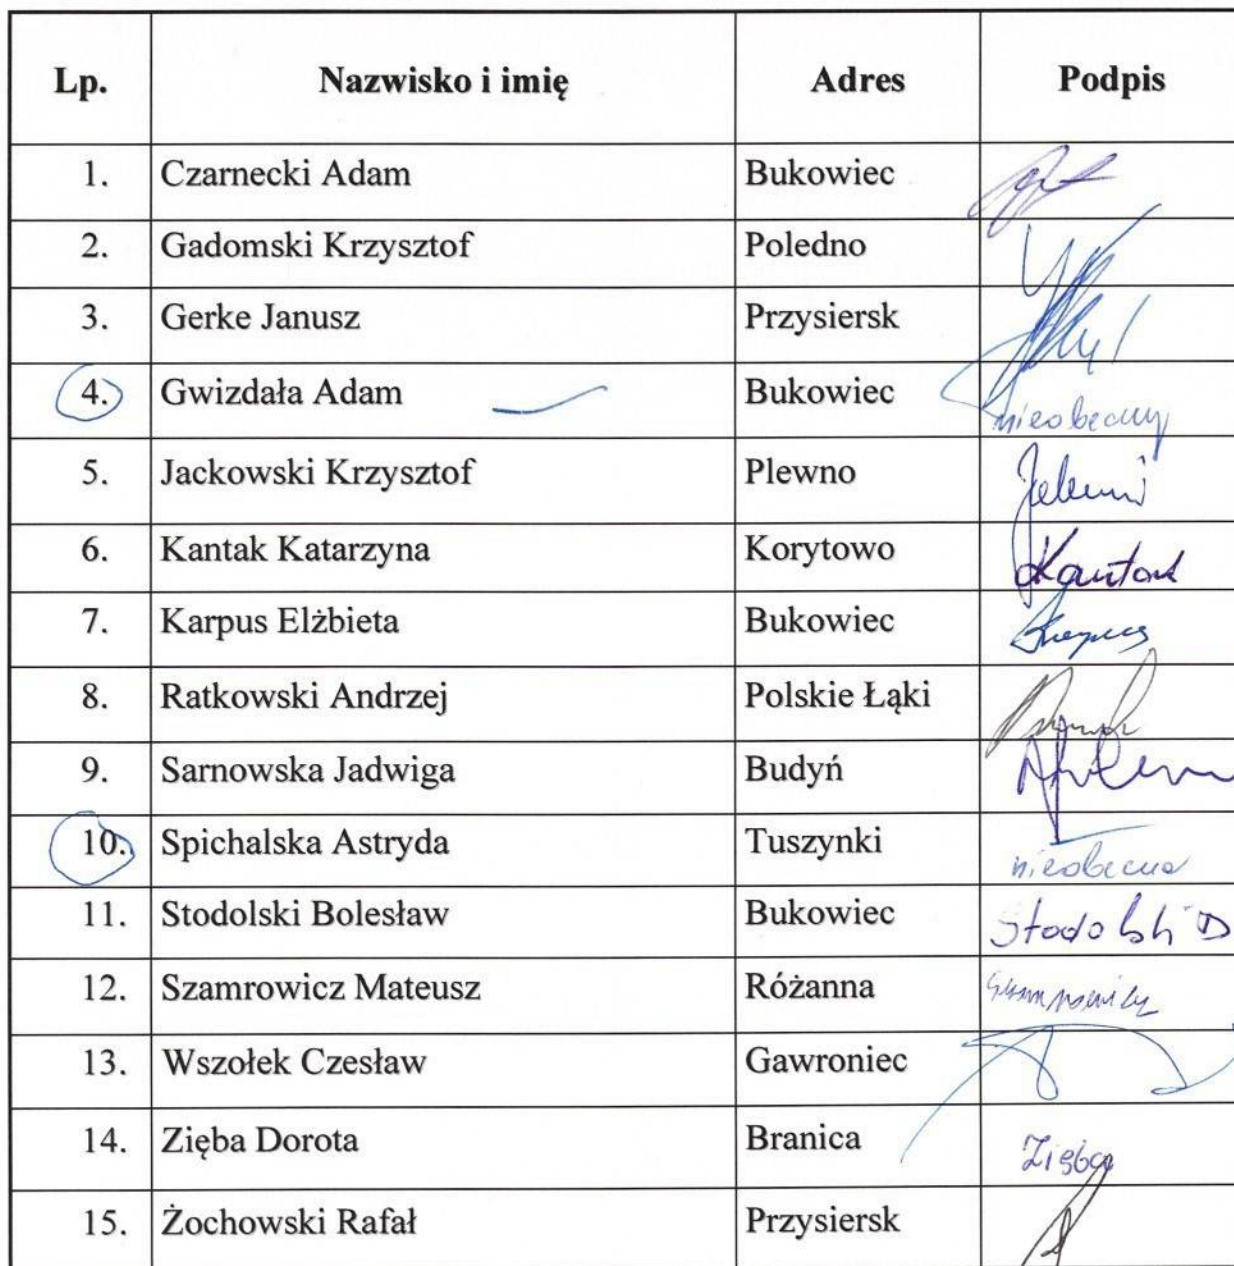 Lp. Nazwisko i imię Adres Podpis
1. Czarnecki Adam Bukowiec
2. Gadomski Krzysztof Poledno
3. Gerke Janusz Przysiersk
4. Gwizdała Adam Bukowiec nieobecny
5. Jackowski Krzysztof Plewno
6. Kantak Katarzyna Korytowo Kantak
7. Karpus Elżbieta Bukowiec
8. Ratkowski Andrzej Polskie Łąki
9. Sarnowska Jadwiga Budyń
10. Spichalska Astryda Tuszynki nieobecna
11. Stodolski Bolesław Bukowiec
12. Szamrowicz Mateusz Różanna
13. Wszołek Czesław Gawroniec
14. Zięba Dorota Branica Zięba
15. Żochowski Rafał Przysiersk